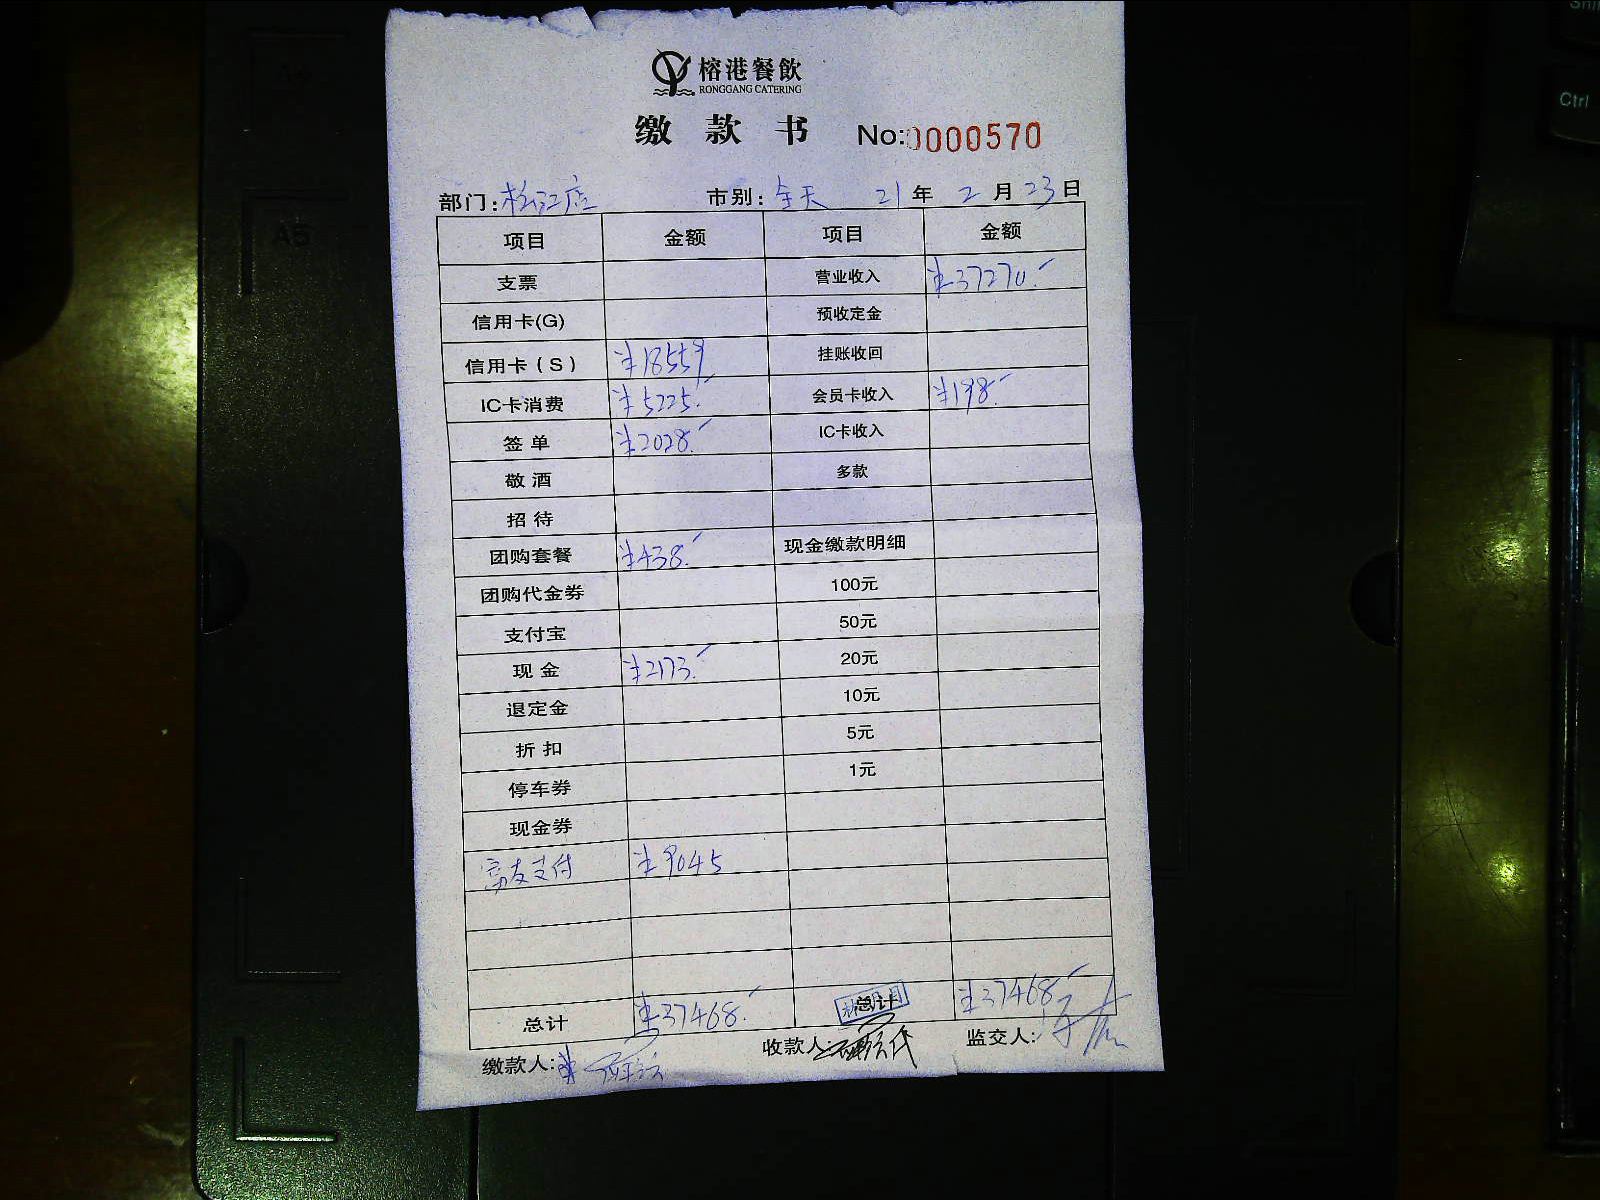 榕港餐飲
RONGGANG CATERING
缴款书 No:0000570
部门:松江店 市别:全天 21年2月23日
项目 金额 项目 金额
支票 营业收入 ¥37270.
信用卡(G) 预收定金
信用卡(S) ¥18559 挂账收回
IC卡消费 ¥5225. 会员卡收入 ¥198.
签单 ¥2028. IC卡收入
敬酒 多款
招待
团购套餐 ¥438. 现金缴款明细
团购代金券 100元
支付宝 50元
现金 ¥2173. 20元
退定金 10元
折扣 5元
停车券 1元
现金券
支付 ¥9045
总计 ¥37468. 总计 ¥37468
缴款人: 收款人: 监交人:
A5
Ctrl